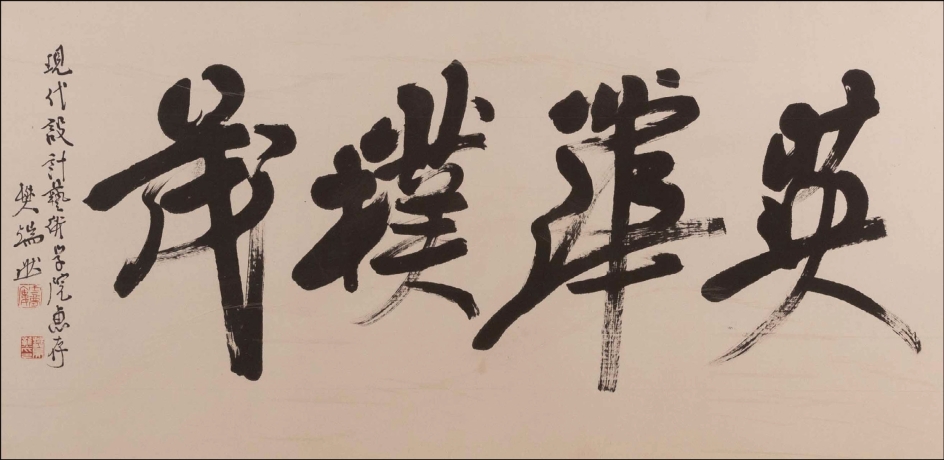 英華樸茂
現代設計藝術学院惠存
樊